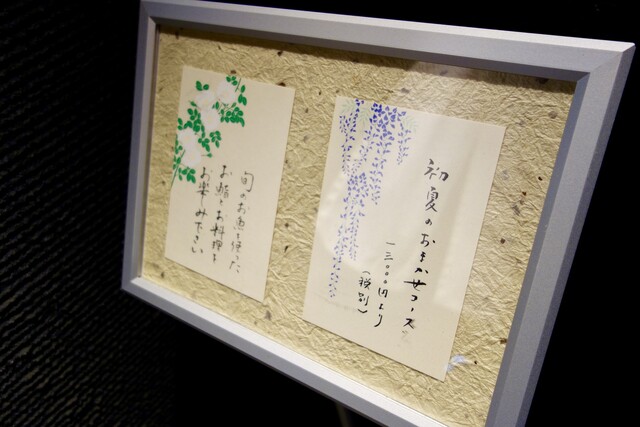 初夏のおまかせコース
一三〇〇〇円より
(税別)
旬のお魚を使った
お鮨とお料理を
お楽しみ下さい